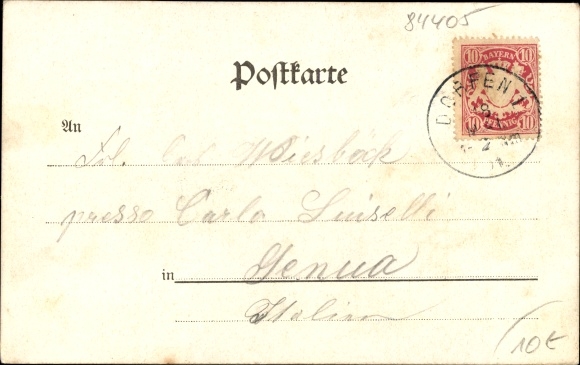 84405
Postkarte
10 BAYERN 10
10 PFENNIG 10
DORFEN
An
Frl. Wiesböck
presso Carlo Luiselli
in Genua
Italien
10€